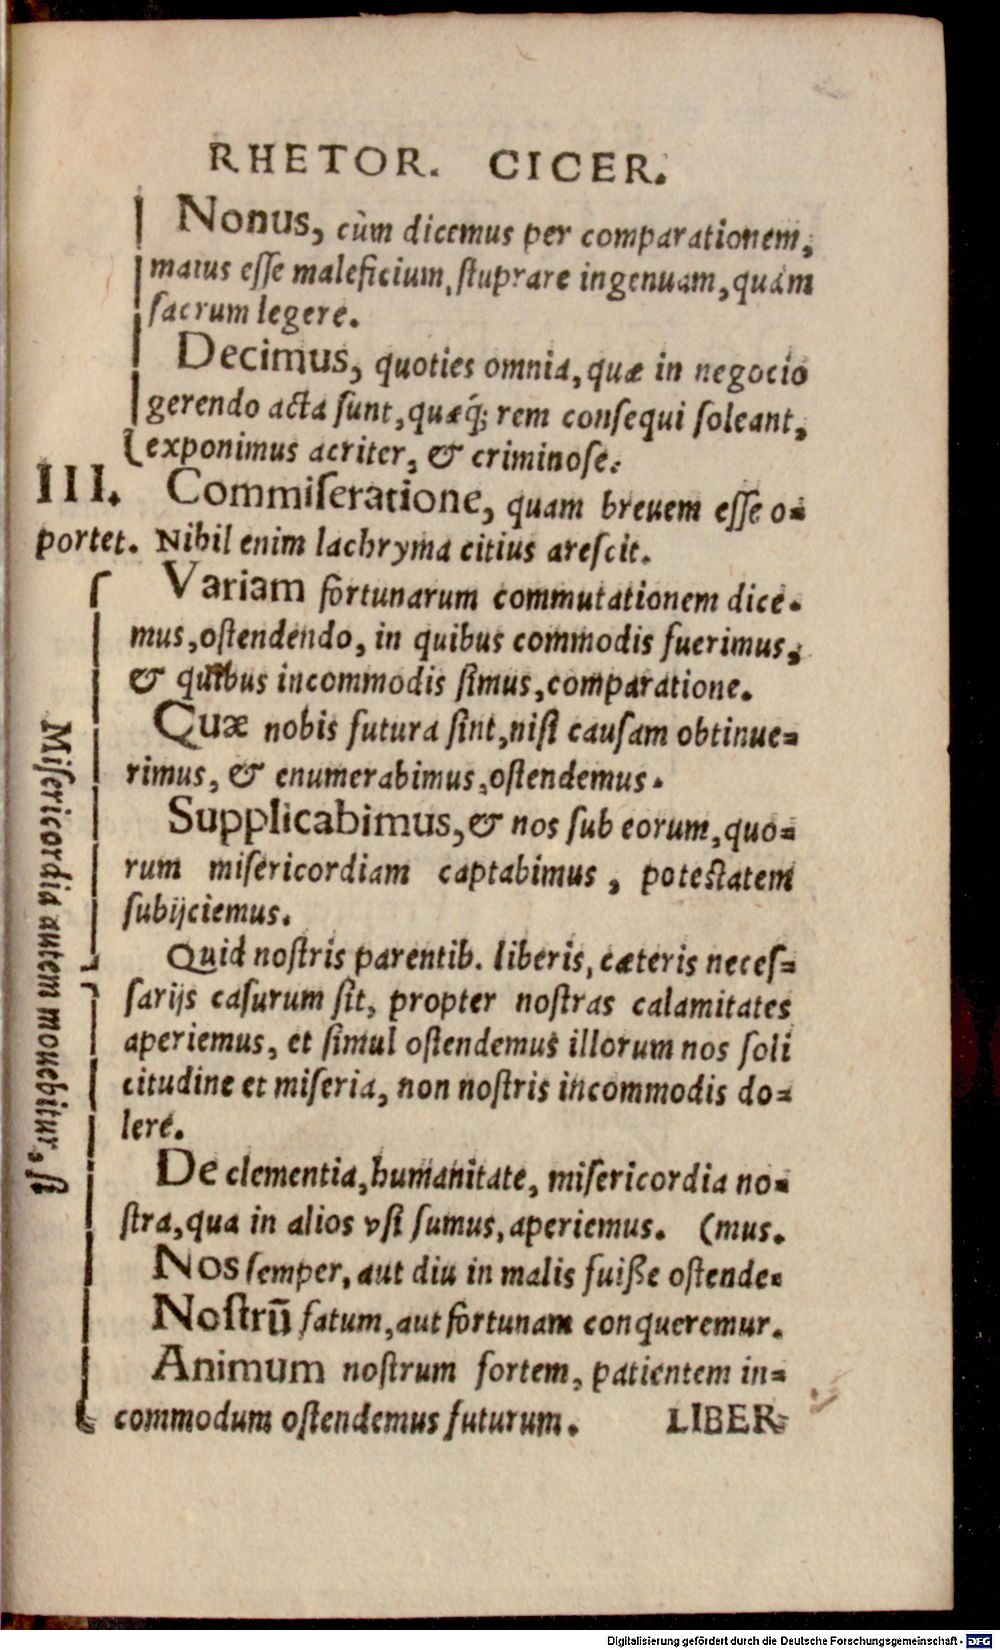 RHETOR. CICER.
Nonus, cùm dicemus per comparationem,
maius eſſe maleficium, ſtuprare ingenuam, quàm
ſacrum legere.
Decimus, quoties omnia, quæ in negocio
gerendo acta ſunt, quæq́; rem conſequi ſoleant,
exponimus acriter, & criminoſe.
III. Commiſeratione, quam breuem eſſe o-
portet. Nihil enim lachryma citius areſcit.
Miſericordia autem mouebitur, ſi
Variam fortunarum commutationem dice-
mus, oſtendendo, in quibus commodis fuerimus,
& quibus incommodis ſimus, comparatione.
Quæ nobis futura ſint, niſi cauſam obtinue-
rimus, & enumerabimus, oſtendemus.
Supplicabimus, & nos ſub eorum, quo-
rum miſericordiam captabimus, poteſtatem
ſubijciemus.
Quid noſtris parentib. liberis, cæteris neceſ-
ſarijs caſurum ſit, propter noſtras calamitates
aperiemus, et ſimul oſtendemus illorum nos ſoli
citudine et miſeria, non noſtris incommodis do-
lere.
De clementia, humanitate, miſericordia no-
ſtra, qua in alios vſi ſumus, aperiemus. (mus.
Nos ſemper, aut diu in malis fuiße oſtende-
Noſtrũ fatum, aut fortunam conqueremur.
Animum noſtrum fortem, patientem in-
commodum oſtendemus futurum.
LIBER
Digitalisierung gefördert durch die Deutsche Forschungsgemeinschaft - DFG